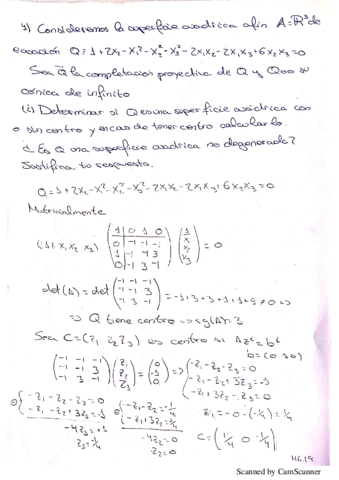 4) Consideremos la superficie cuádrica afín A=R³ de
ecuación Q: 1+2x₂-x₁²-x₂²-x₃²-2x₁x₂-2x₁x₃+6x₂x₃=0
Sea Q̄ la completación proyectiva de Q y Q∞ su
cónica de infinito
(i) Determinar si Q es una superficie cuádrica con
o sin centro y en caso de tener centro calcularlo.
¿Es Q una superficie cuádrica no degenerada?
Justifina tu respuesta.
Q=1+2x₂-x₁²-x₂²-x₃²-2x₁x₂-2x₁x₃+6x₂x₃=0
Matricialmente
(1 x₁ x₂ x₃) (1 0 1 0 / 0 -1 -1 -1 / 1 -1 -1 3 / 0 -1 3 -1) (1 x₁ x₂ x₃) = 0
det(A)=det (-1 -1 -1 / -1 -1 3 / -1 3 -1) = -1+3+3+1+1+9≠0 =>
=> Q tiene centro => rg(A)=3
Sea C=(z₁ z₂ z₃) es centro si Azᵗ=bᵗ
b=(0 1 0)
(-1 -1 -1 / -1 -1 3 / -1 3 -1) (z₁ z₂ z₃) = (0 -1 0) => { -z₁-z₂-z₃=0
-z₁-z₂+3z₃=-1
-z₁+3z₂-z₃=0
{ -z₁-z₂-z₃=0
-z₁-z₂+3z₃=-1
-4z₃=+1
z₃=-1/4
{ -z₁-z₂=-1/4
-z₁+3z₂=-1/4
-4z₂=0
z₂=0
z₁=-0-(-1/4)=1/4
C=(1/4 0 -1/4)
Scanned by CamScanner